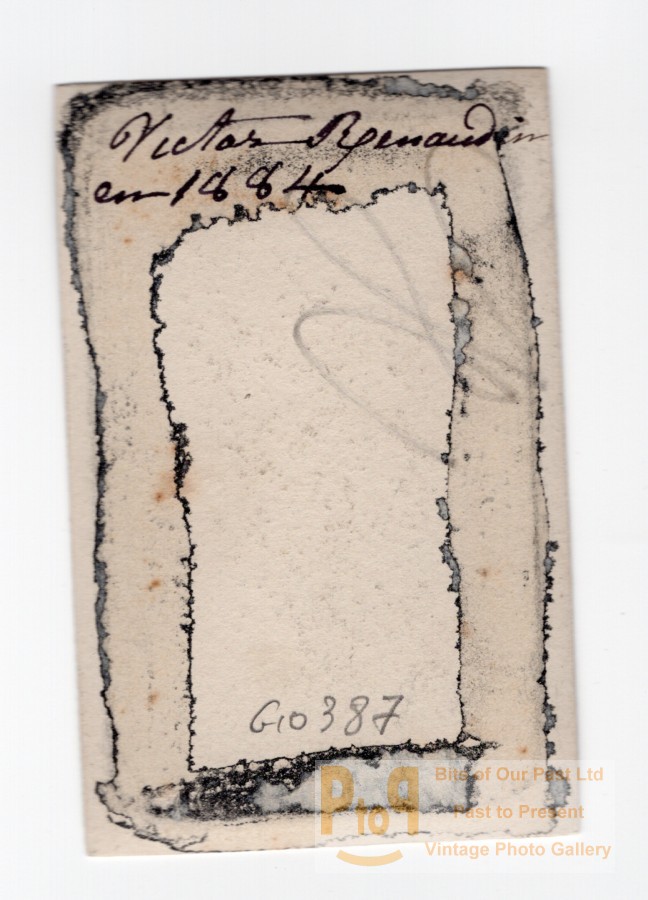 Victor Renaudin
en 1884
G10387
PtoP
Bits of Our Past Ltd
Past to Present
Vintage Photo Gallery